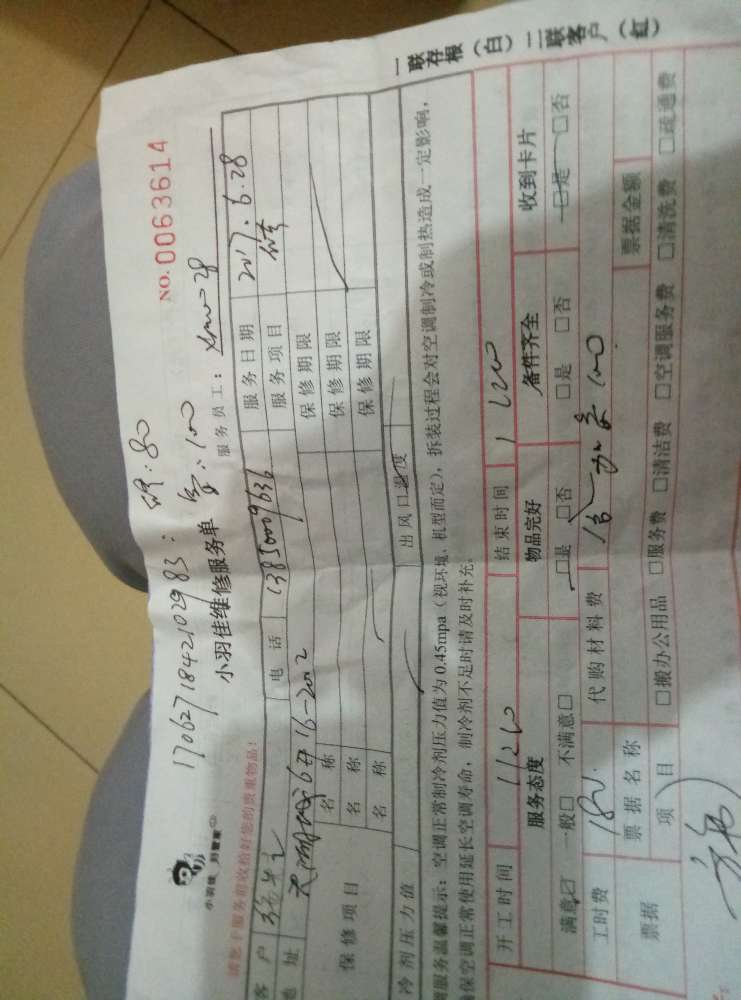 一联存根（白）二联客户（红）
NO.0063614
170627184210298３：
小羽佳维修服务单
服务员工：
小羽佳 到管家
请您于服务前收拾好您的贵重物品！
客户
电话 13850009636
服务日期 2017.6.28
地址 6#16-202
服务项目
保修项目
名称
保修期限
名称
保修期限
名称
保修期限
冷剂压力值
出风口温度
服务温馨提示：空调正常制冷剂压力值为0.45mpa（视环境、机型而定），拆装过程会对空调制冷或制热造成一定影响，
保空调正常使用延长空调寿命，制冷剂不足时请及时补充。
开工时间 1120 结束时间 1200
服务态度 物品完好 备件齐全 收到卡片
满意☑ 一般□ 不满意□ □是 □否 □是 □否 □是 □否
工时费 180 代购材料费 100
票据 票据名称 票据金额
项目 □搬办公用品 □服务费 □清洁费 □空调服务费 □清洗费 □疏通费